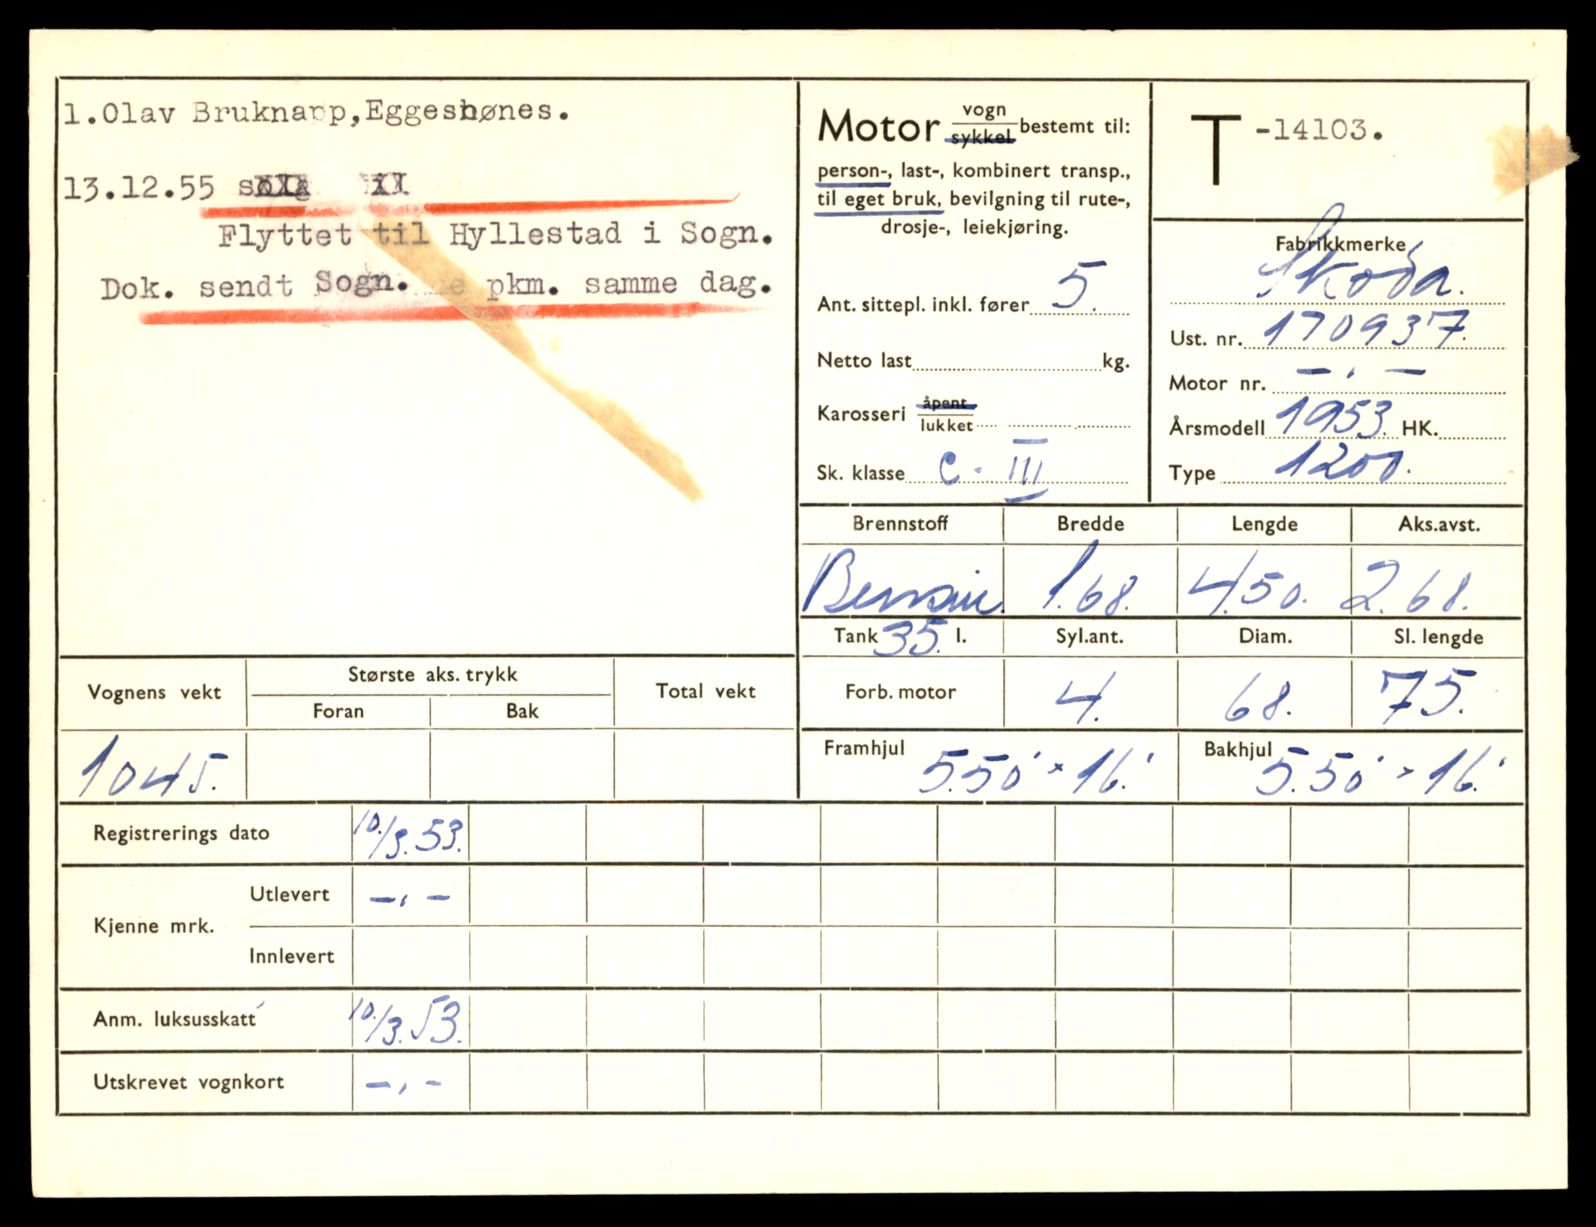 1.Olav Bruknapp,Eggesbønes.
13.12.55
Flyttet til Hyllestad i Sogn.
Dok. sendt Sogn. pkm. samme dag.
Motor vogn
sykkel bestemt til:
person-, last-, kombinert transp.,
til eget bruk, bevilgning til rute-,
drosje-, leiekjøring.
Ant. sittepl. inkl. fører 5.
Netto last kg.
Karosseri åpent
lukket
Sk. klasse C. III
T -14103.
Fabrikkmerke
Skoda.
Ust. nr. 170937.
Motor nr. — . —
Årsmodell 1953. HK.
Type 1200.
Brennstoff Bredde Lengde Aks.avst.
Bensin 1.68. 4.50. 2.68.
Tank 35. l. Syl.ant. Diam. Sl. lengde
Forb. motor 4. 68. 75.
Framhjul 5.50 × 16. Bakhjul 5.50 × 16.
Vognens vekt Største aks. trykk Total vekt
Foran Bak
1045.
Registrerings dato 10./3.53.
Kjenne mrk. Utlevert — . —
Innlevert
Anm. luksusskatt 10./3.53.
Utskrevet vognkort — . —